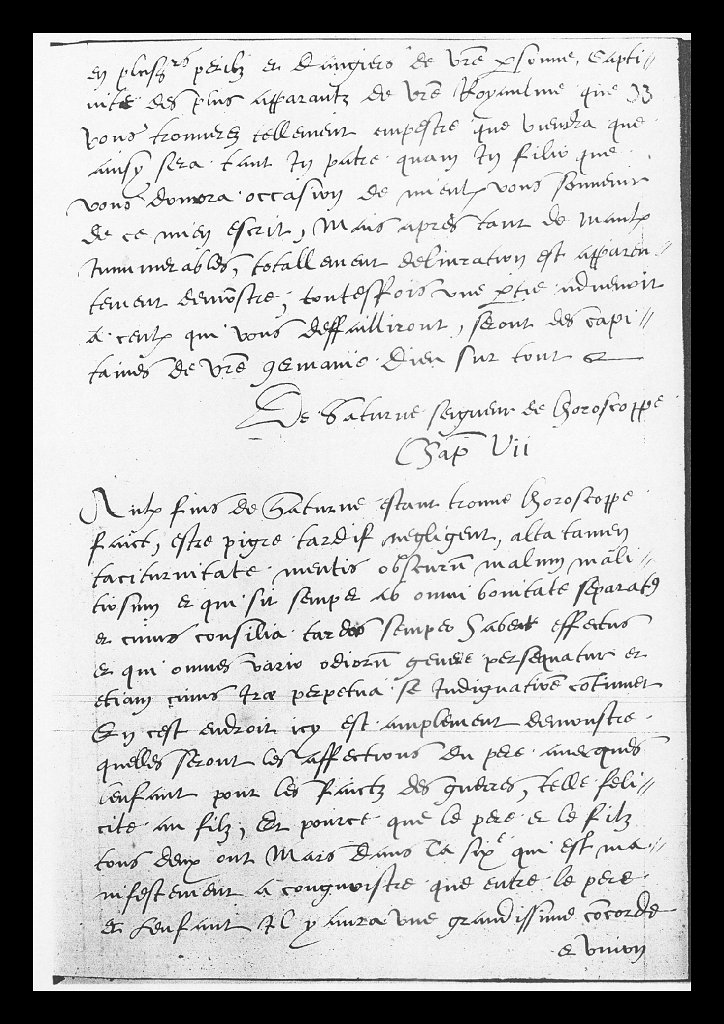 en plusrs perilz et dangiers de vre psonne, Capti//
uite des plus apparantz de vre Royaulme que 33
vous trouuerez tellement empestre que viendra que
ainsy sera tant In patre quam In filio que
vous donnera occasion de mieulx vous souuenir
de ce mien escrit, Mais apres tant de maulx
Innumerables, totallement deliuration est apparen//
tement demonstre, toutesfois vne ptie aduenoit
a ceulx qui vous deffailliront, seront des capi//
taines de vre germanie Dieu sur tout &
De Saturne seigneur de horoscoppe
Chap VII
Aulx fins de Saturne estant trouue horoscoppe
faict, estre pigre tardif negligent, alta tamen
taciturnitate mentis obscurum malum mali//
tiosum et qui sit semper ab omni bonitate separatus
et cuius consilia tardos semper habent effectus
et qui omnes vario odiorum genere persequatur et
etiam cuius Irae perpetua se Indignatione continuet
En cest endroit icy est amplement demonstre
quelles seront les affections du pere auecques
lenfant pour les faictz des guerres, telle feli//
cite au filz, Et pource que le pere et le filz
tous deux ont Mars dans la sixe qui est ma//
nifestement a congnoistre que entre le pere
et Lenfant Il y aura vne grandissime concorde
et vnion